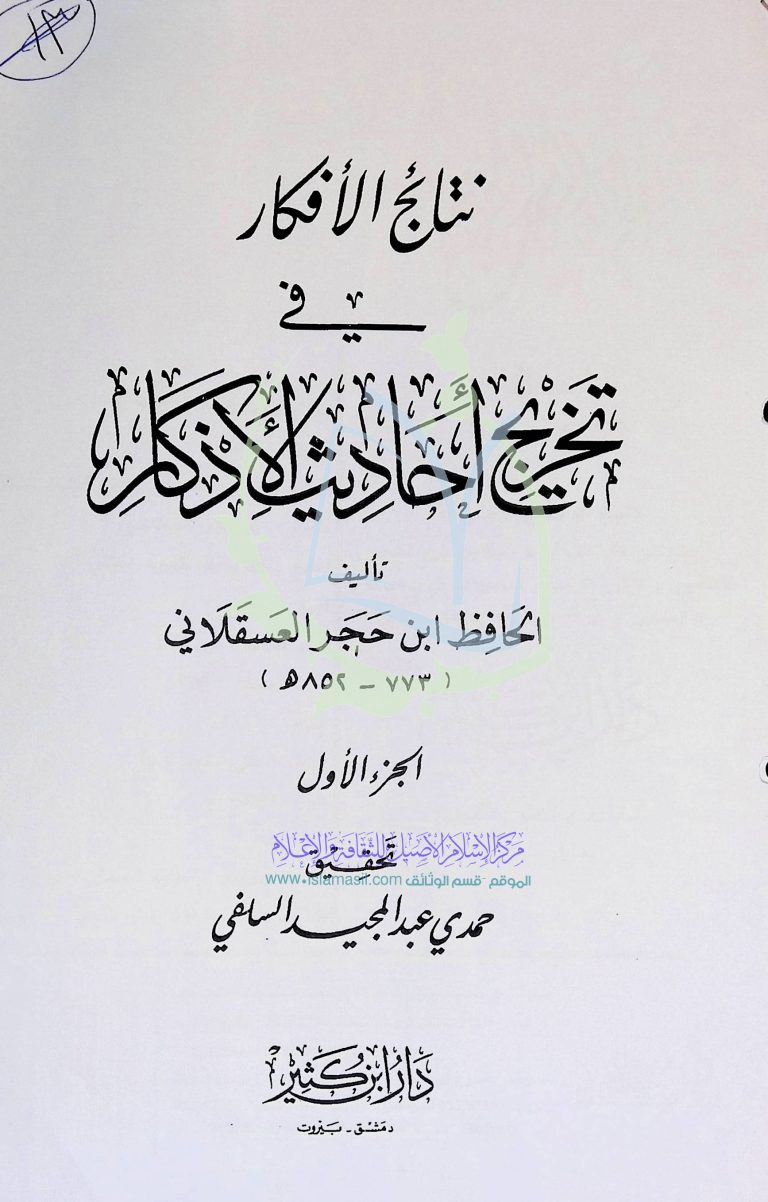 ١٣
نتائج الأفكار
في
تَخْرِيج أَحَادِيث الأَذْكَار
تأليف
الحَافِظ ابن حَجَر العَسقَلَاني
( ٧٧٣ - ٨٥٢ هـ )
الجزء الأول
مركز الإسلام الأصيل للثقافة والإعلام
تحقيق
الموقع - قسم الوثائق www.islamasil.com
حمدي عبد المجيد السلفي
دَارُ ابن كَثِير
دمشق - بيروت